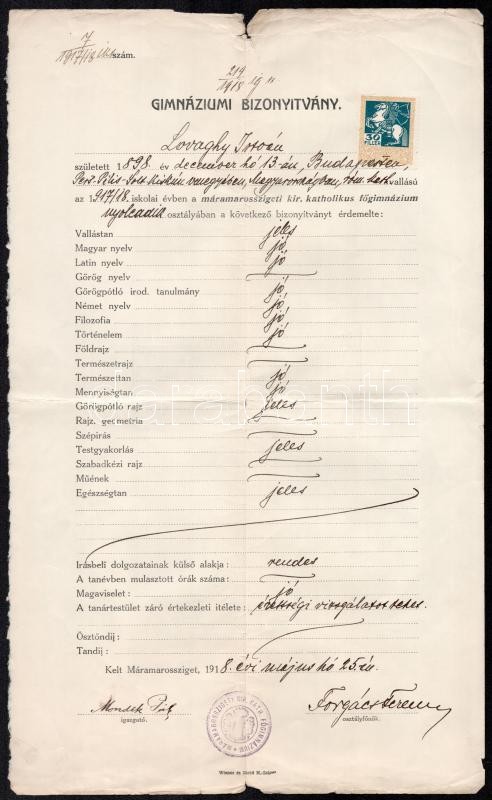 7
1917/18 szám.
219
1918
GIMNÁZIUMI BIZONYITVÁNY.
30
FILLÉR
Lovaghy István
született 1898. év december hó 13-án, Budapesten,
Pest-Pilis-Solt-Kiskún vmegyében, Magyarországban, róm. kath. vallású
az 1917/18. iskolai évben a máramarosszigeti kir. katholikus főgimnázium
nyolcadik osztályában a következő bizonyitványt érdemelte:
Vallástan jeles
Magyar nyelv jó
Latin nyelv jó
Görög nyelv —
Görögpótló irod. tanulmány jó
Német nyelv jó
Filozofia jó
Történelem jó
Földrajz —
Természetrajz —
Természettan jó
Mennyiségtan jó
Görögpótló rajz jeles
Rajz. geometria —
Szépirás —
Testgyakorlás jeles
Szabadkézi rajz —
Műének —
Egészségtan jeles
Irásbeli dolgozatainak külső alakja: rendes
A tanévben mulasztott órák száma: —
Magaviselet: jó
A tanártestület záró értekezleti itélete: érettségi vizsgálatot tehet.
Ösztöndij:
Tandij:
Kelt Máramarossziget, 1918. évi május hó 25-én.
Mondik Pál
igazgató.
MÁRAMAROSSZIGETI KIR. KATH. FŐGIMNÁZIUM
Forgács Ferenc
osztályfőnök.
darabanth